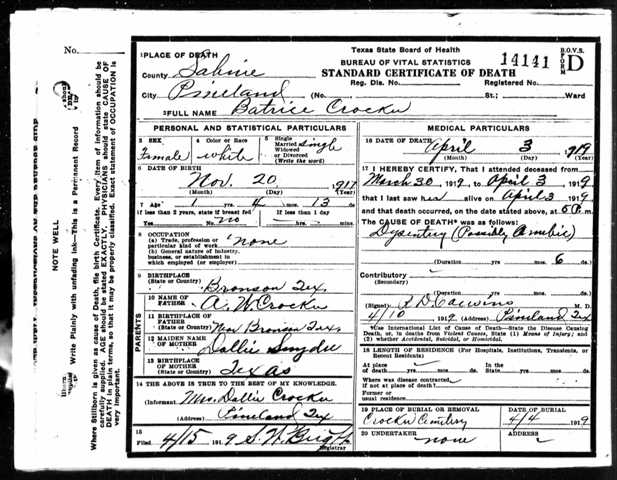 No.
Texas State Board of Health
BUREAU OF VITAL STATISTICS
STANDARD CERTIFICATE OF DEATH
14141
B.O.V.S.
FORM
D
1 PLACE OF DEATH
County Sabine
Reg. Dis. No.
Registered No.
City Pineland
(No.
St.;
Ward
2 FULL NAME Batrice Crocker
PERSONAL AND STATISTICAL PARTICULARS
3 SEX
Female
4 Color or Race
White
5 Single
Married
Widowed
or Divorced
(Write the word)
Single
6 DATE OF BIRTH
Nov. 20 1917
(Month) (Day) (Year)
7 Age 1 yrs. 4 mos. 13 ds.
If less than 2 years, state if breast fed
Yes No no
If less than 1 day
hrs. min.
8 OCCUPATION
(a) Trade, profession or
particular kind of work
none
(b) General nature of industry,
business, or establishment in
which employed (or employer)
9 BIRTHPLACE
(State or Country)
Bronson Tex
PARENTS
10 NAME OF
FATHER
A. W. Crocker
11 BIRTHPLACE OF
FATHER
(State or Country)
Near Bronson Tex
12 MAIDEN NAME
OF MOTHER
Dallie
13 BIRTHPLACE
OF MOTHER
(State or Country)
Texas
14 THE ABOVE IS TRUE TO THE BEST OF MY KNOWLEDGE.
(Informant Mrs. Dallie Crocker
(Address) Pineland Tex
15
Filed 4/15 1919
Registrar
MEDICAL PARTICULARS
16 DATE OF DEATH
April 3 1919
(Month) (Day) (Year)
17 I HEREBY CERTIFY, That I attended deceased from
March 30, 1919, to April 3 1919
that I last saw her alive on April 3 1919
and that death occurred, on the date stated above, at 5 P. m.
The CAUSE OF DEATH* was as follows:
Dysentery (Possibly Amebic)
(Duration yrs. mos. 6 ds.
Contributory
(Secondary)
(Duration) yrs. mos. ds.
(Signed) M. D.
4/10 1919 (Address) Pineland Tex
*Use International List of Cause of Death—State the Disease Causing
Death, or, in deaths from Violent Causes, State (1) Means of Injury; and
(2) whether Accidental, Suicidal, or Homicidal.
18 LENGTH OF RESIDENCE (For Hospitals, Institutions, Transients, or
Recent Residents)
At place
of death yrs. mos. ds.
In the
State yrs. mos. ds.
Where was disease contracted,
if not at place of death?
Former or
usual residence
19 PLACE OF BURIAL OR REMOVAL
Crocker Cemetery
DATE OF BURIAL
4/4 1919
20 UNDERTAKER
none
ADDRESS
NOTE WELL
Write Plainly with unfading Ink—This is a Permanent Record
Where Stillborn is given as cause of Death, file birth Certificate. Every Item of information should be
carefully supplied. AGE should be stated EXACTLY. PHYSICIANS should state CAUSE OF
DEATH in plain terms, so that it may be properly classified. Exact statement of OCCUPATION is
very important.